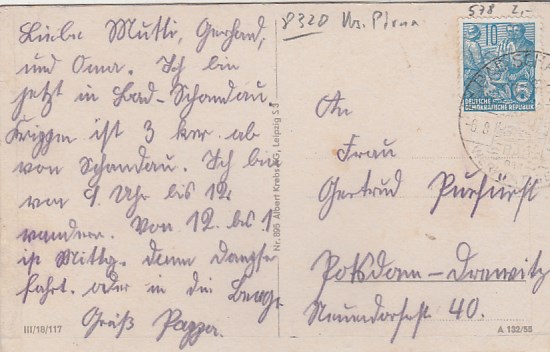 8320 Krs. Pirna
578 2,-
Liebe Mutti, Gerhard,
und Oma. Ich bin
jetzt in Bad-Schandau.
Krippen ist 3 km ab
von Schandau. Ich bin
von 9 Uhr bis 12
wandern. Von 12 bis 1
ist Mittg. dann Dampfer
fahrt. oder in die Berge
Gruß
III/18/117
Nr. 895 Albert Krebs KG, Leipzig S 3
10
DEUTSCHE
DEMOKRATISCHE REPUBLIK
BAD SCHA
An
Frau
Gertrud
Potsdam-Drewitz
40.
A 132/58